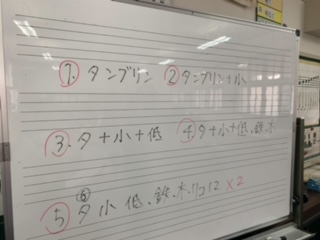 ① タンブリン ② タンブリン+小
③ タ+小+低 ④ タ+小+低、鉄、木
⑥
⑤ タ 小 低、鉄、木、リコ12 ×2